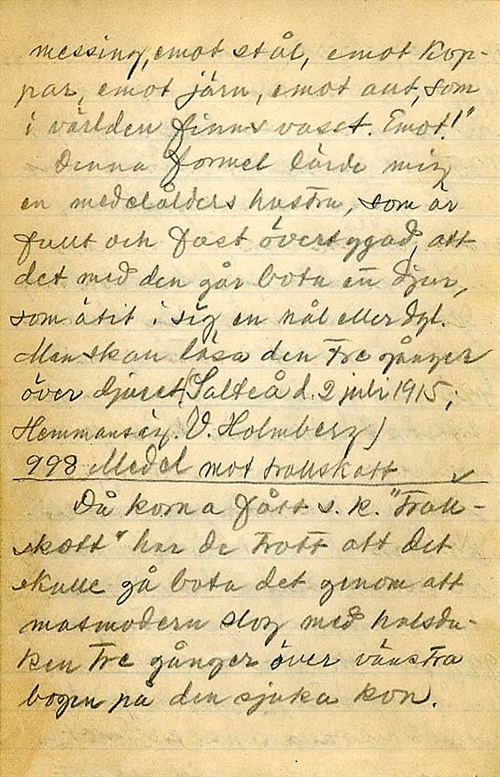 messing, emot stål, emot kop-
par, emot järn, emot allt, som
i världen finns vasst. Emot!"
Denna formel lärde mig
en medelålders hustru, som är
fullt och fast övertygad, att
det med den går bota en djur,
som ätit i sig en nål eller dyl.
Man skall läsa den tre gånger
över djuret. (Salteå d. 2 juli 1915;
Hemmansäg. V. Holmberg)
998 Medel mot trollskott
Då korna fått s. k. "troll-
skott" har de trott att det
skulle gå bota det genom att
matmodern slog med halsdu-
ken tre gånger över vänstra
bogen på den sjuka kon.